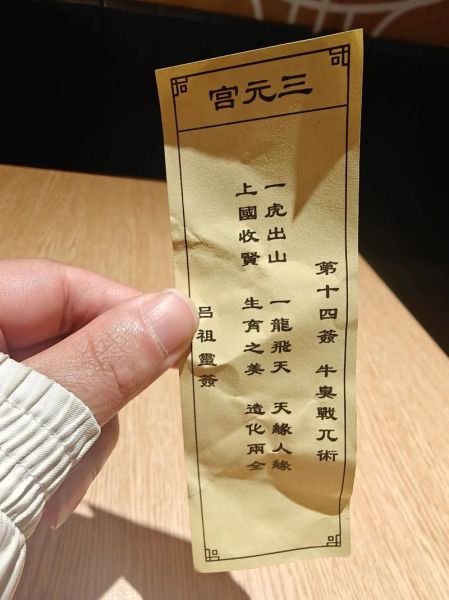 三元宫
第十四簽 牛臭戰兀術
一虎出山 一龍飛天 天緣人緣
上國收賢 生育之美 造化兩全
呂祖靈簽